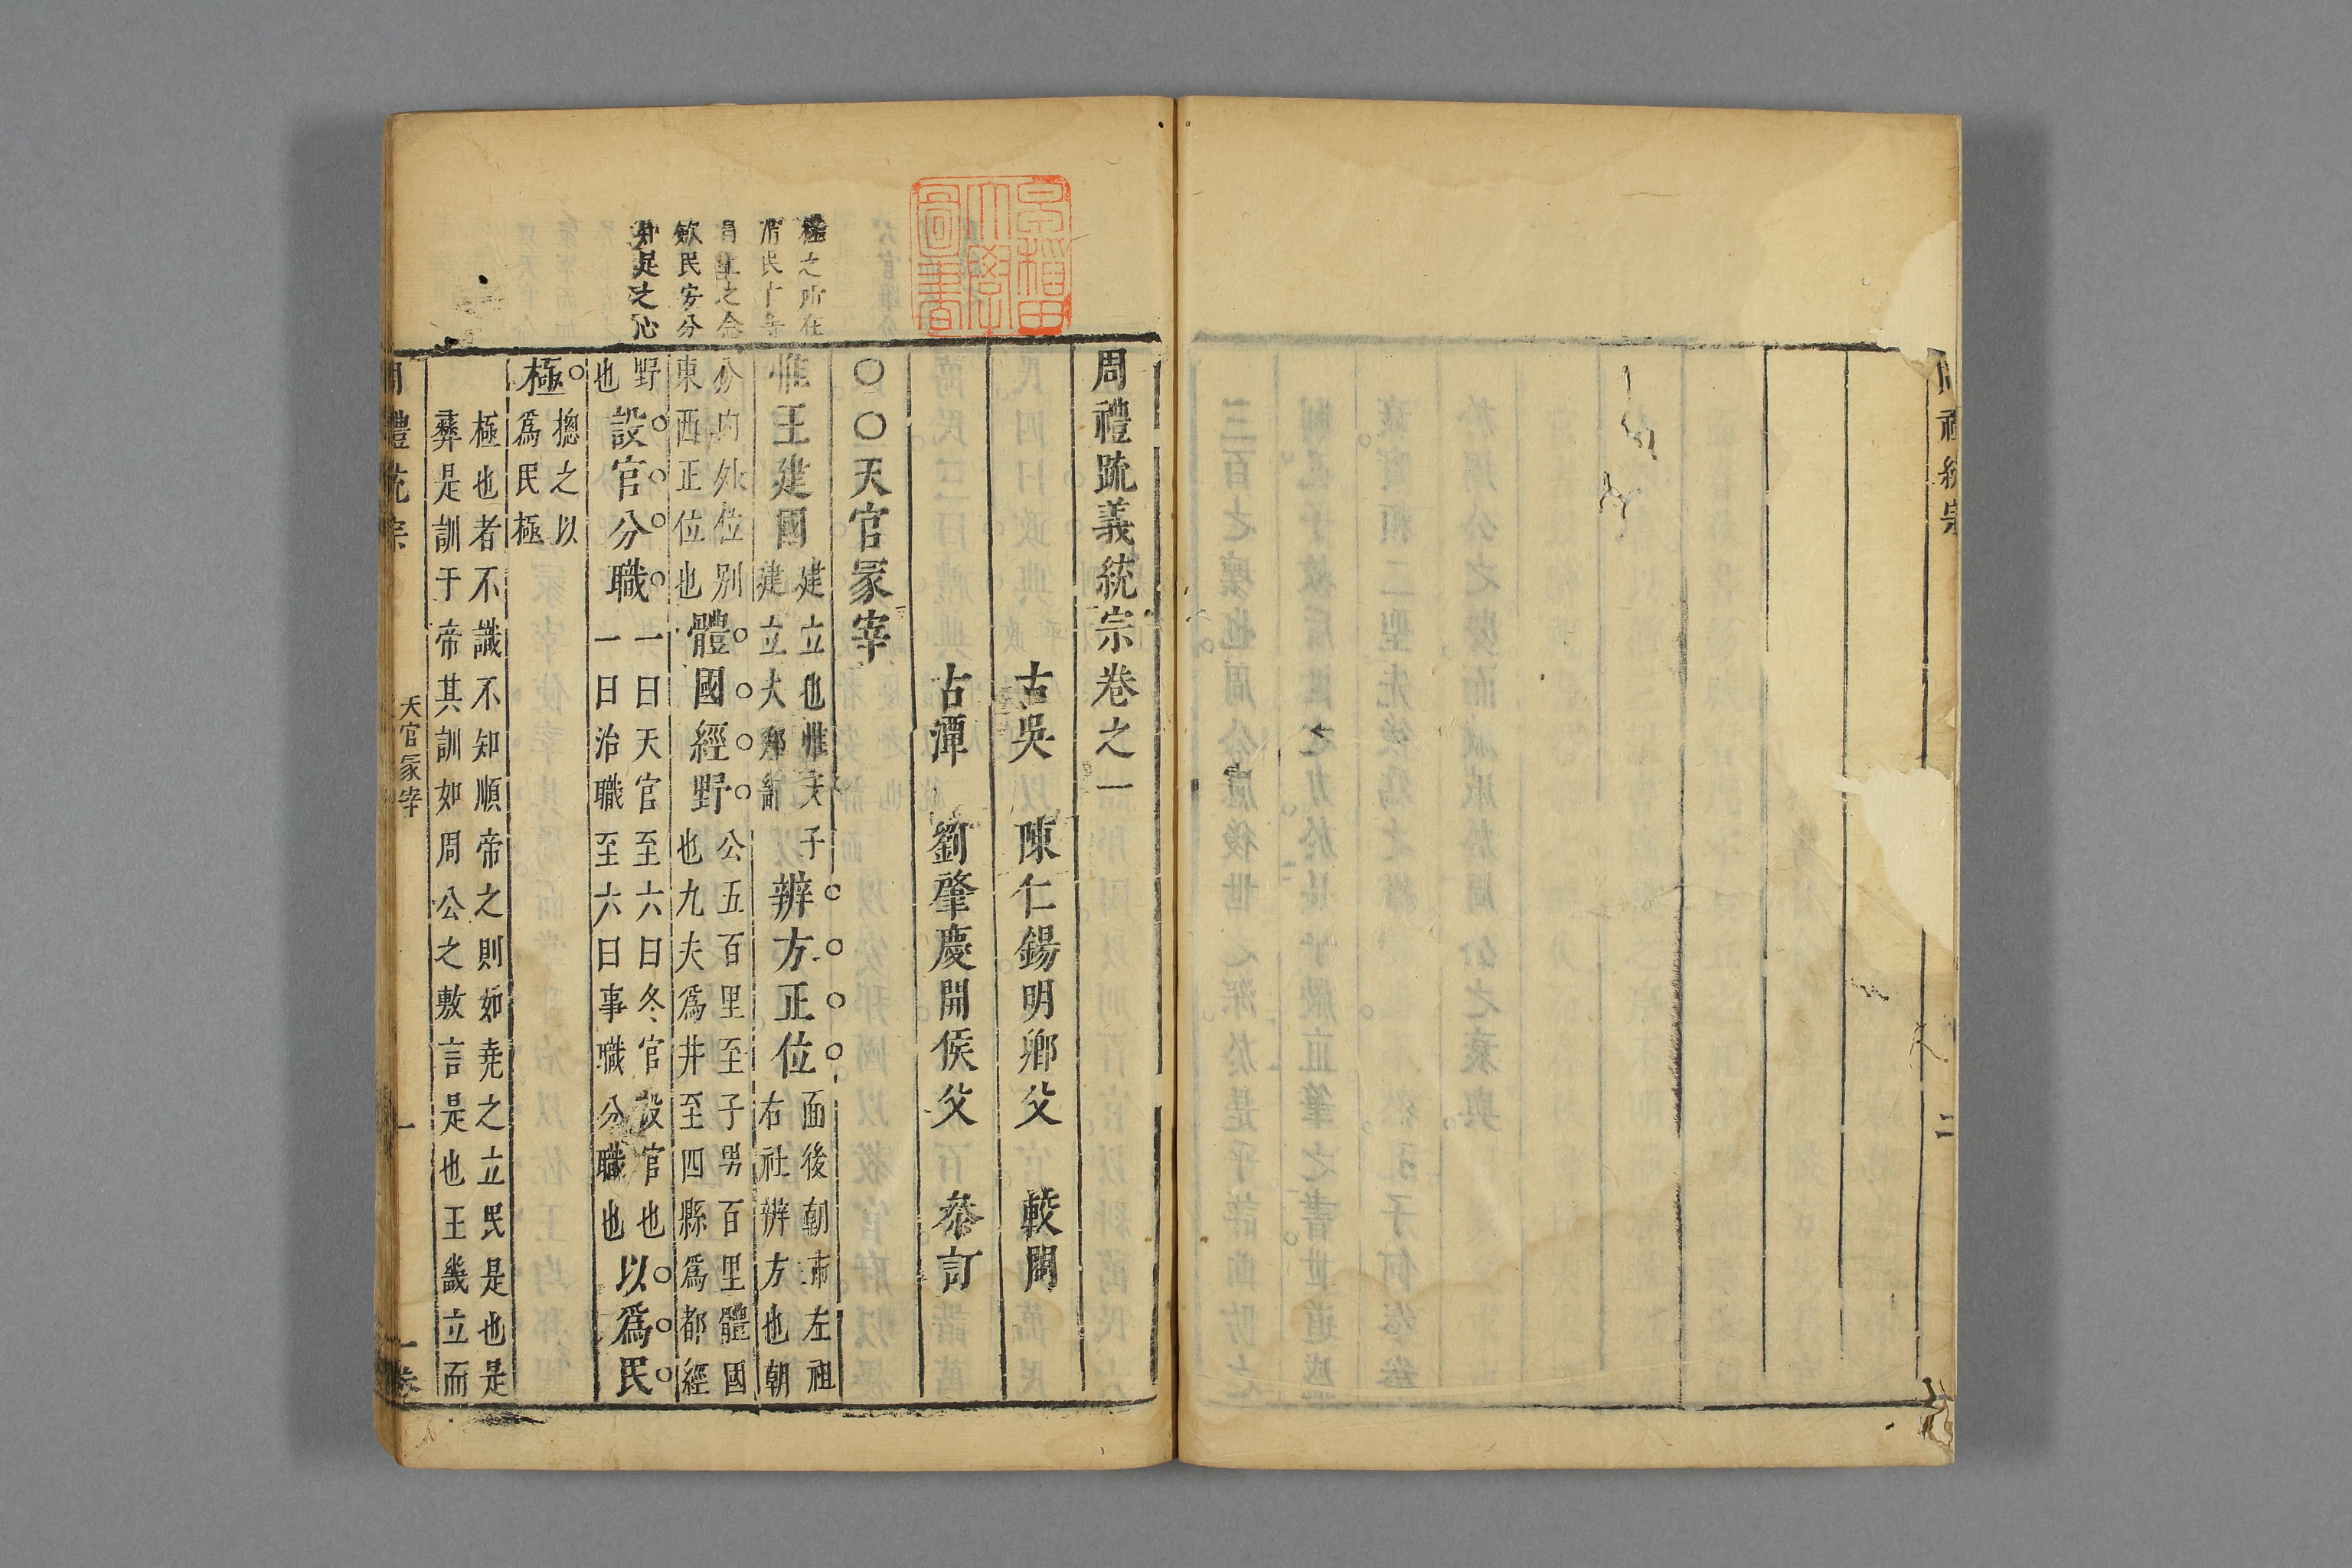 周禮統宗
二
周禮䟽義統宗卷之一
古吳　陳仁錫明卿父　較閱
古潭　劉肇慶開侯父　叅訂
〇〇天官冢宰
惟王建國
建立也惟天子
建立大邦謝
辨方正位
面後朝市左祖
右社辨方也朝
分内外位别
東西正位也
體國經野
公五百里至子男百里體國
也九夫爲井至四縣爲都經
野
也
設官分職
一曰天官至六曰冬官設官也
一曰治職至六曰事職分職也
以爲民
極
摠之以
爲民極
極也者不識不知順帝之則如尭之立民是也是
彛是訓于帝其訓如周公之敷言是也王畿立而
周禮統宗
天官冢宰
一
一卷
極之所在
民
之念
欽民安分
之心
早稲田大學圖書